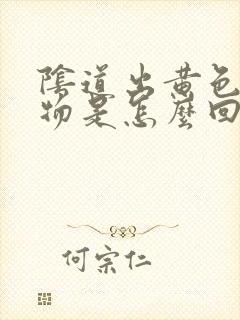 陰道出黃色
物是怎麼回
何宗仁